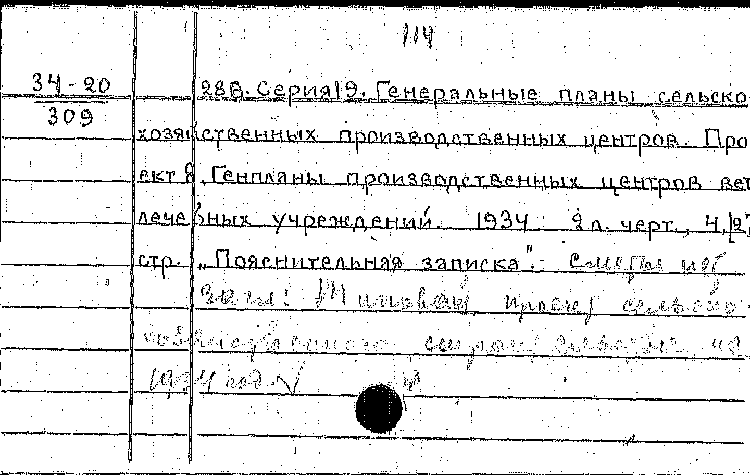 114
34-20
309
28в. Серия 19. Генеральные планы сельско
хозяйственных производственных центров. Про
ект 8. Генпланы производственных центров вет
лечебных учреждений. 1934. 2 л. черт., 4, [2]
стр. „Пояснительная записка".
загл: Типовой проект сельско
хозяйственного строительства на
1934 год